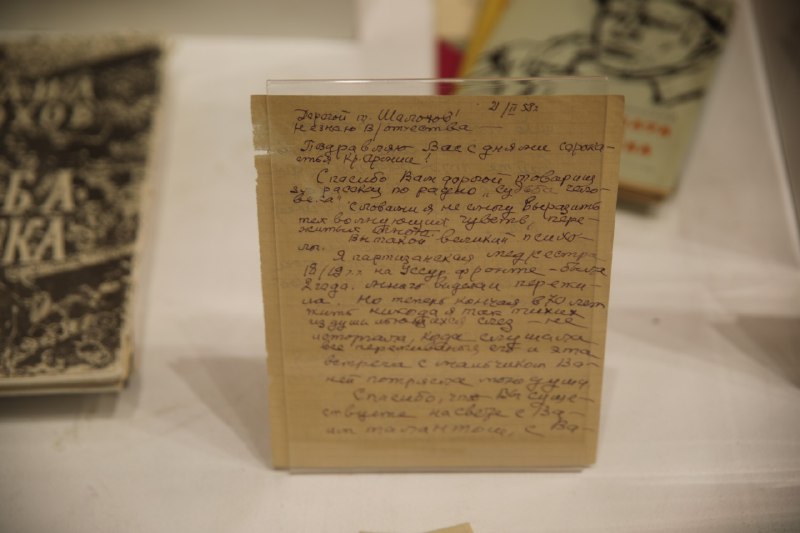 21/II 58 г.
Дорогой т. Шолохов!
Не знаю В/отчества
Поздравляю Вас с днями сорока-
летья Кр. Армии!
Спасибо Вам дорогой товарищ
за рассказ по радио „Судьба чело-
века"
Словами я не смогу выразить
тех волнующих чувств, пере-
житых
Вы такой великий психо-
лог.
Я партизанская медсестра
18/19 г.г. на Уссур. фронте – была
2 года. Много видела и пережи-
ла. Но теперь кончая в 70 лет
жить никогда я так тихих
из души льющихся слез – не
исторгала, когда слушала
все переживания его и эта
встреча с мальчиком Ва-
ней потрясла мою душу
Спасибо, что Вы суще-
ствуете на свете с Ва-
шим талантом, с Ва-
ОХОВ
ЬБА